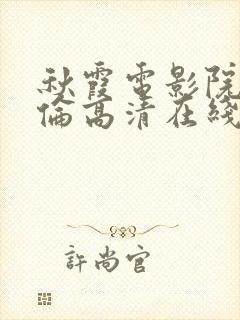 秋霞電影院
倫高清在綫
許尚官